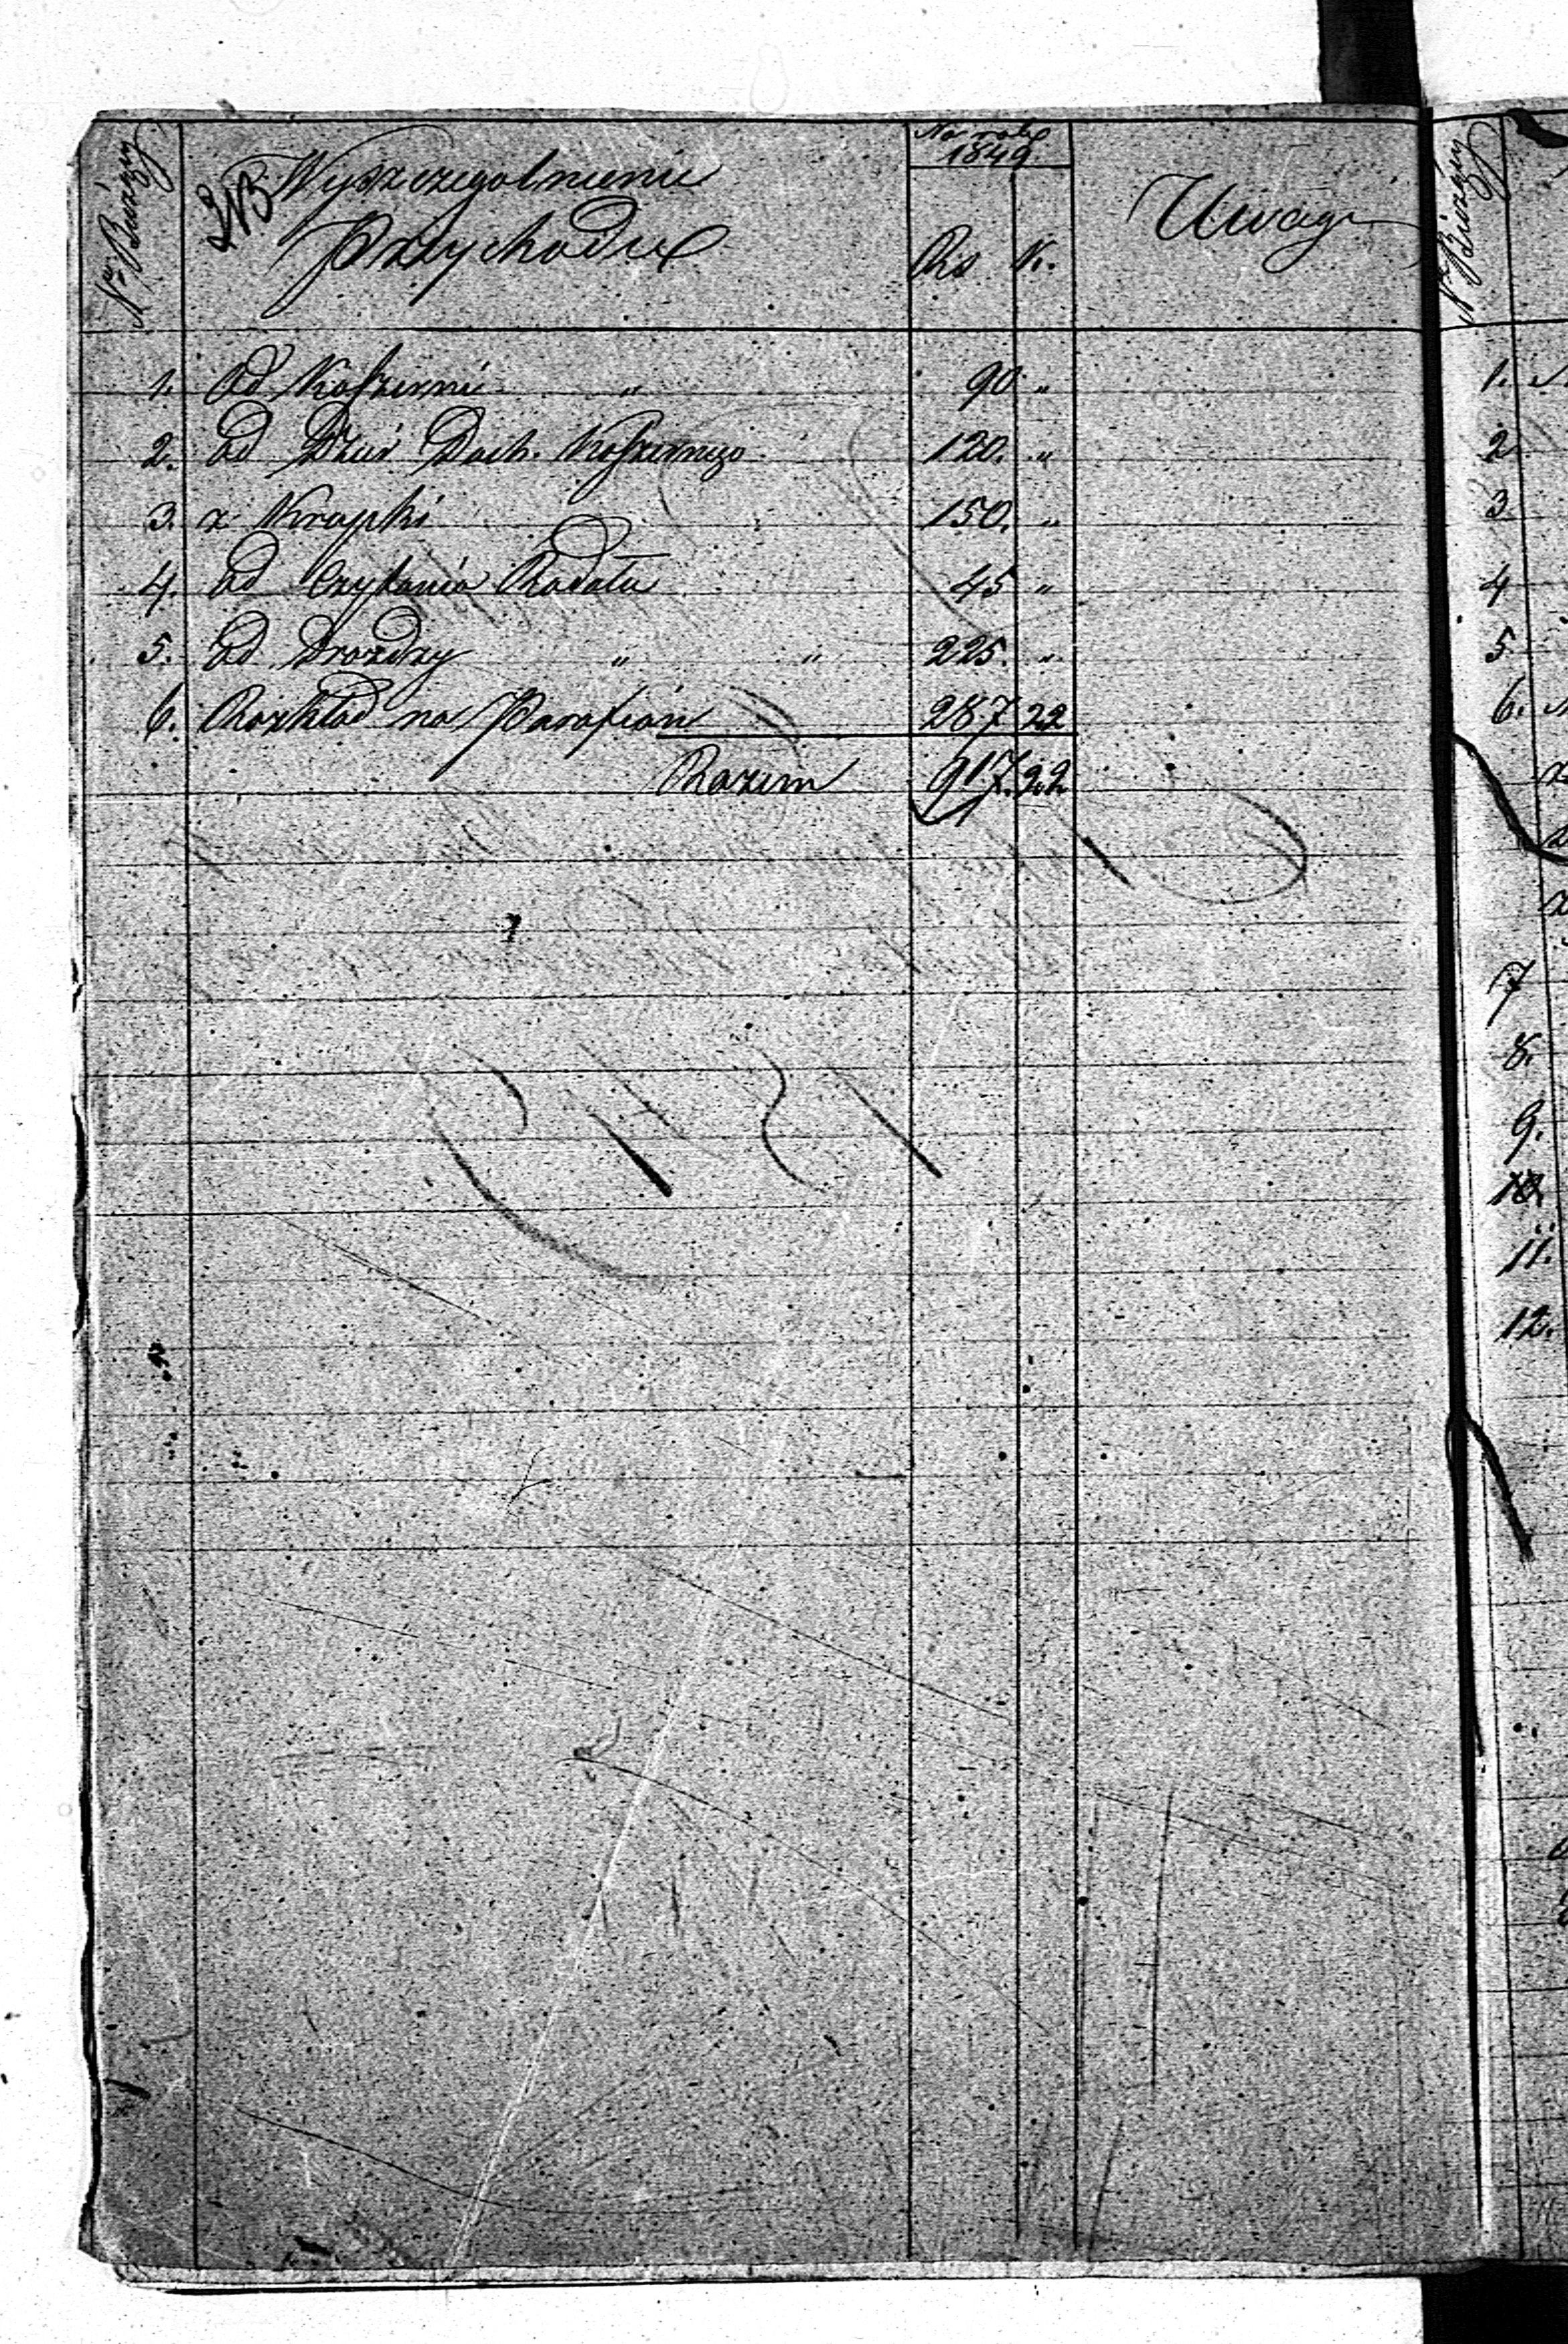 Nr Bieżący
Wyszczególnienie
Przychodu
Na rok
1849.
Rs K.
Uwagi
1. Od Koszerni " 90 "
2. od Dzier Doch. Koszernego 120. "
3. z Kropki 150. "
4. od Czytania Rodału 45 "
5. od Drożdży " " 225. "
6. Rozkład na Parafian 287 22
Razem 917.22
Nr Bieżący
1.
2
3
4
5
6.
7
8.
9.
10
11.
12.